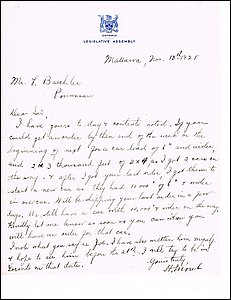 ONTARIO
LEGISLATIVE ASSEMBLY
Mattawa, Nov. 13th 1925
Mr. L. Baechler
Powassan
Dear Sir:
I have yours to day & contents noted. If you
could get me an order by then end of the week or the
beginning of next for a car load of 6" and wider,
and 2 or 3 thousand feet of 2x4 as I get 2 cars on
the way & after I got your last order, I got them to
start a new car as they had 10,000' of 6" & wider
in one car. Will be shipping your last order in a few
days. We still have a car with 10,000' & order on the way.
Kindly let me know as soon as you can when you
will have an order for that car.
I note what you say re Jobs. I have also written him myself
& hope to see him before the 25th. I will try to be in
Toronto on that date.
Yours truly,